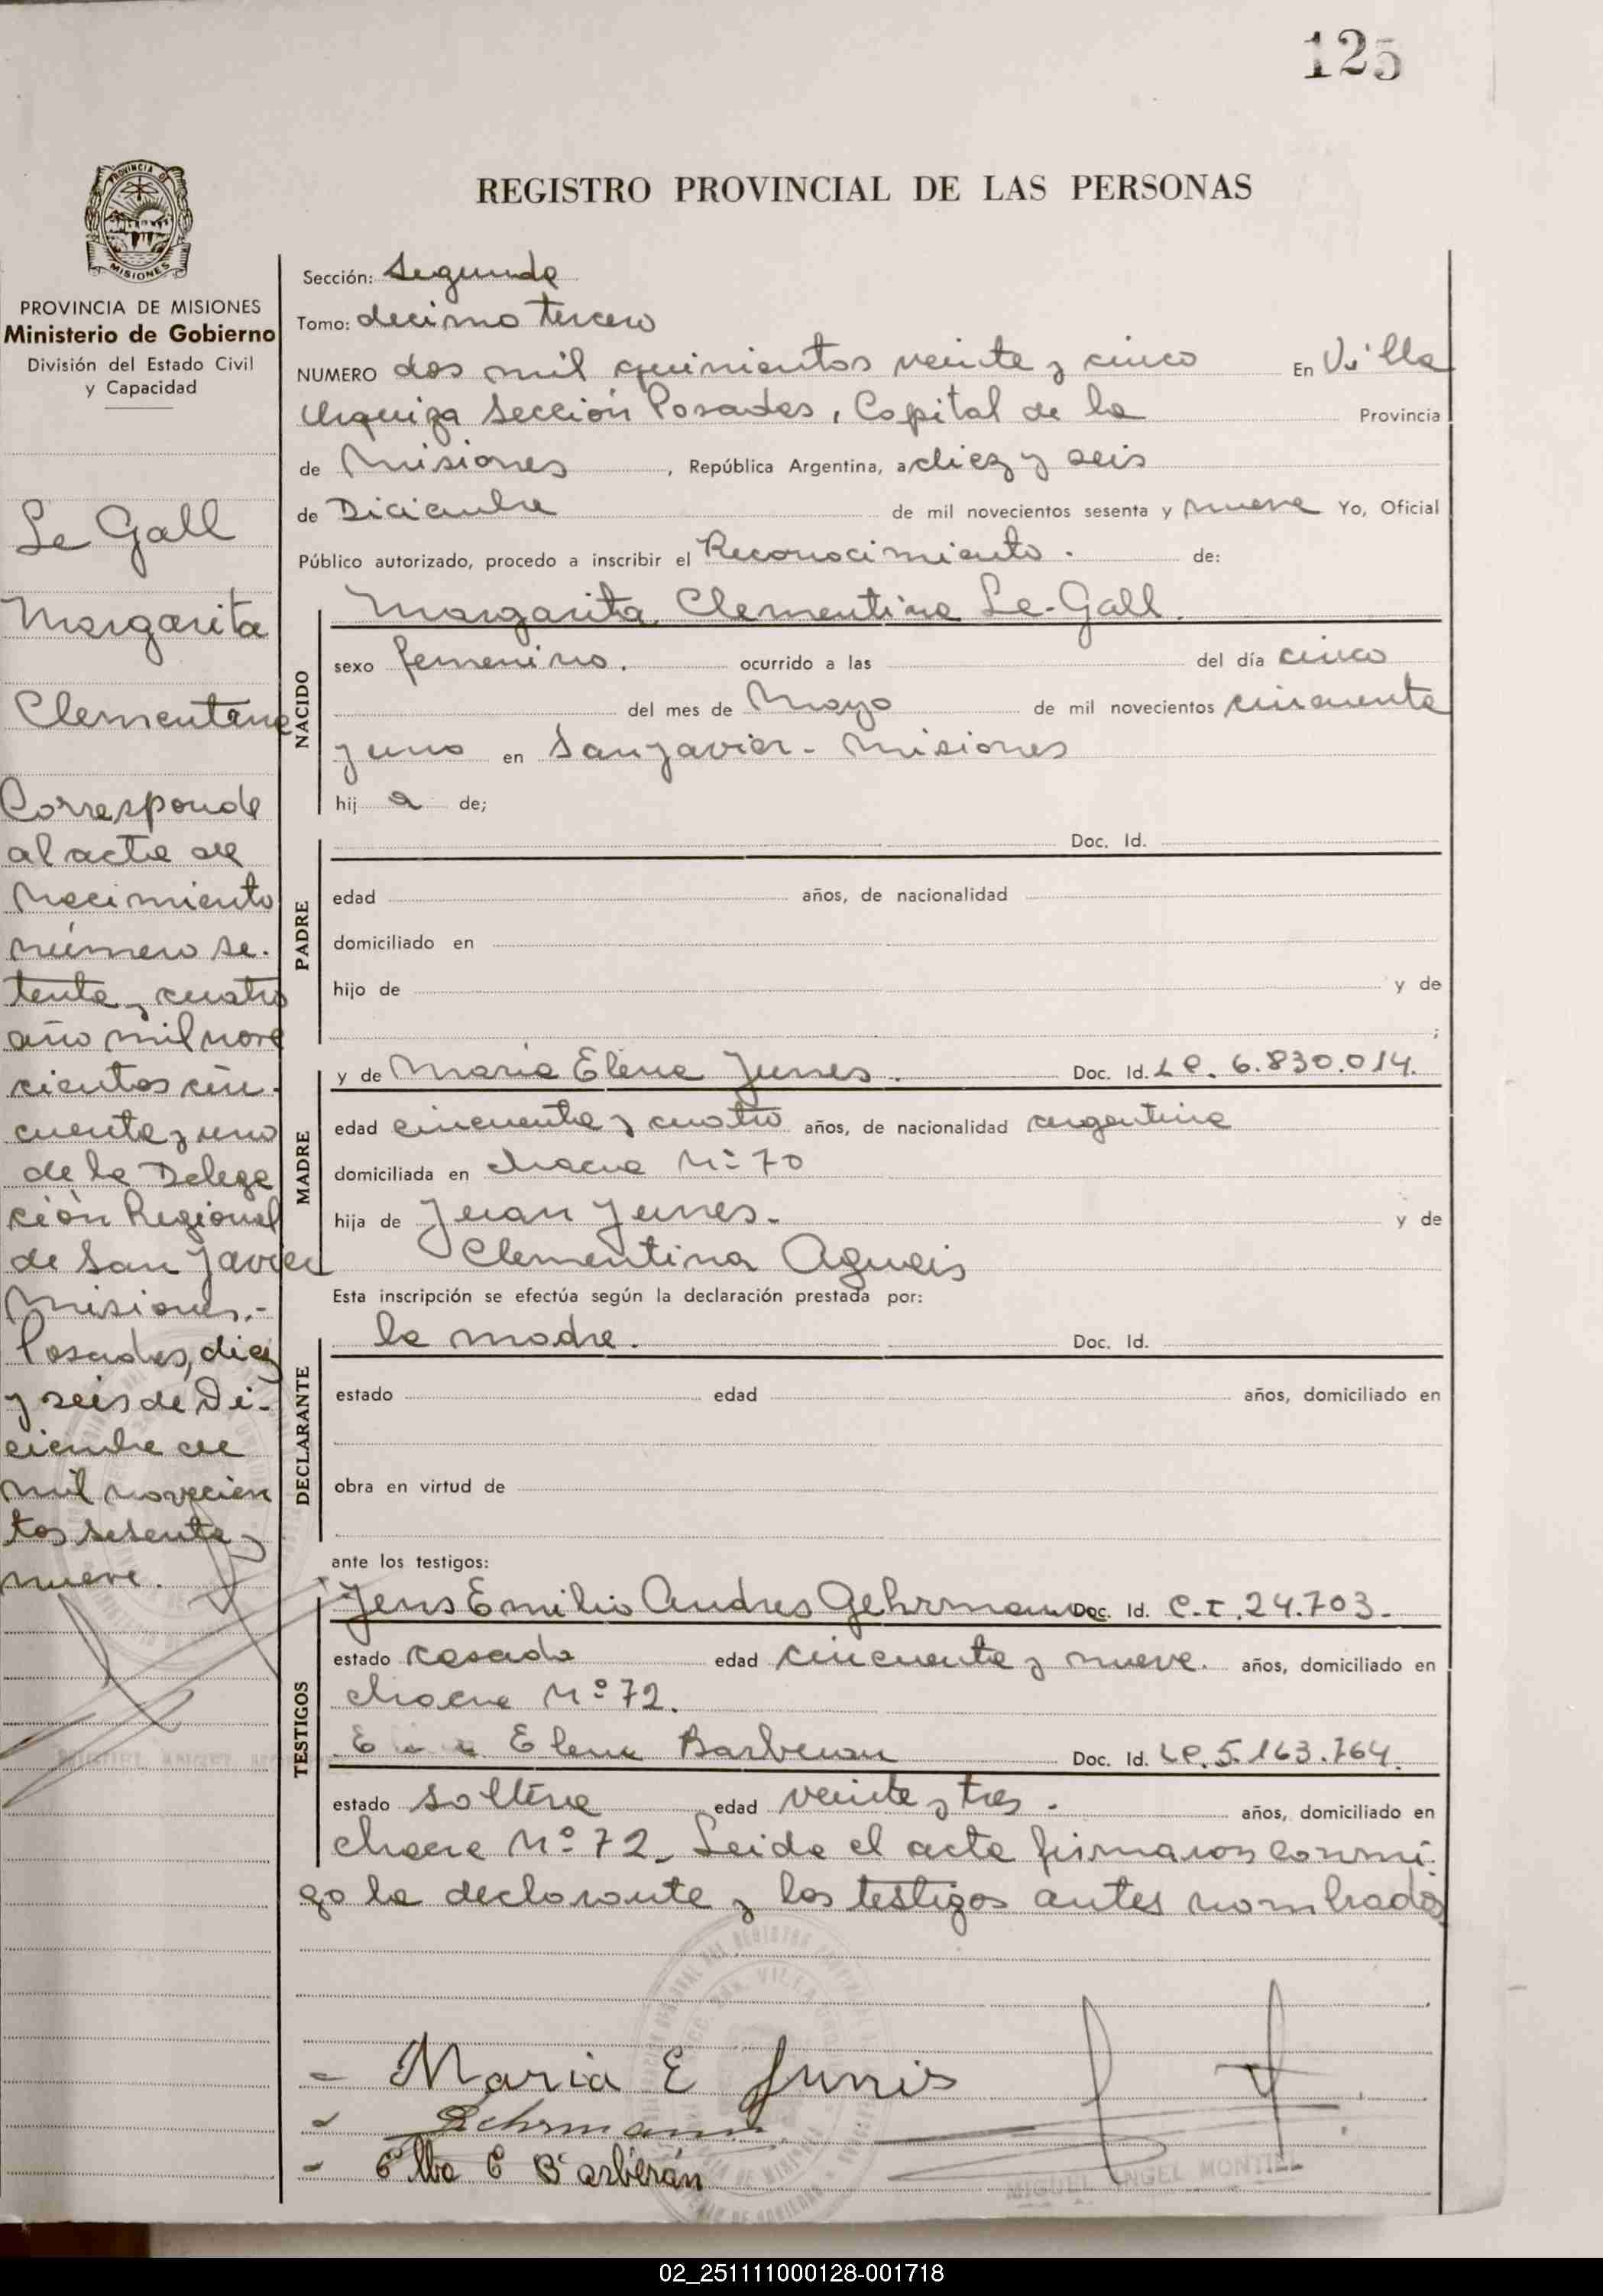 125
PROVINCIA DE
MISIONES
PROVINCIA DE MISIONES
Ministerio de Gobierno
División del Estado Civil
y Capacidad
Le Gall
Margarita
Clementina
Corresponde
al acta de
Nacimiento
número se-
tenta y cuatro
año mil nove
cientos cin-
cuenta y uno
de la Delega
ción Regional
de San Javier
Misiones.-
Posadas, diez
y seis de Di-
ciembre de
mil novecien
tos sesenta y
nueve.
REGISTRO PROVINCIAL DE LAS PERSONAS
Sección: Segunda
Tomo: decimo tercero
NUMERO dos mil quinientos veinte y cinco En Villa
Urquiza Sección Posadas, Capital de la Provincia
de Misiones, República Argentina, a diez y seis
de Diciembre de mil novecientos sesenta y nueve Yo, Oficial
Público autorizado, procedo a inscribir el Reconocimiento. de:
NACIDO
Margarita Clementina Le-Gall.
sexo femenino. ocurrido a las del día cinco
del mes de Mayo de mil novecientos cincuenta
y uno en San Javier - Misiones
hij a de;
PADRE
Doc. Id.
edad años, de nacionalidad
domiciliado en
hijo de y de
;
MADRE
y de María Elena Junes. Doc. Id. L C. 6.830.014.
edad cincuenta y cuatro años, de nacionalidad argentina
domiciliada en chacra Nº 70
hija de Juan Junes. y de
Clementina
Esta inscripción se efectúa según la declaración prestada por:
DECLARANTE
la madre. Doc. Id.
estado edad años, domiciliado en
obra en virtud de
ante los testigos:
TESTIGOS
Jens Emilio Andres Gehrmann Doc. Id. C.I. 24.703.
estado casado edad cincuenta y nueve. años, domiciliado en
chacra Nº 72.
Elena Barberan Doc. Id. LC. 5.163.764.
estado soltera edad veinte y tres. años, domiciliado en
chacra Nº 72. Leida el acta firmaron conmi-
go la declarante y los testigos antes nombrados
Maria E Junis
Gehrmann
Elba E Barberán
MIGUEL ANGEL MONTIEL
02_251111000128-001718